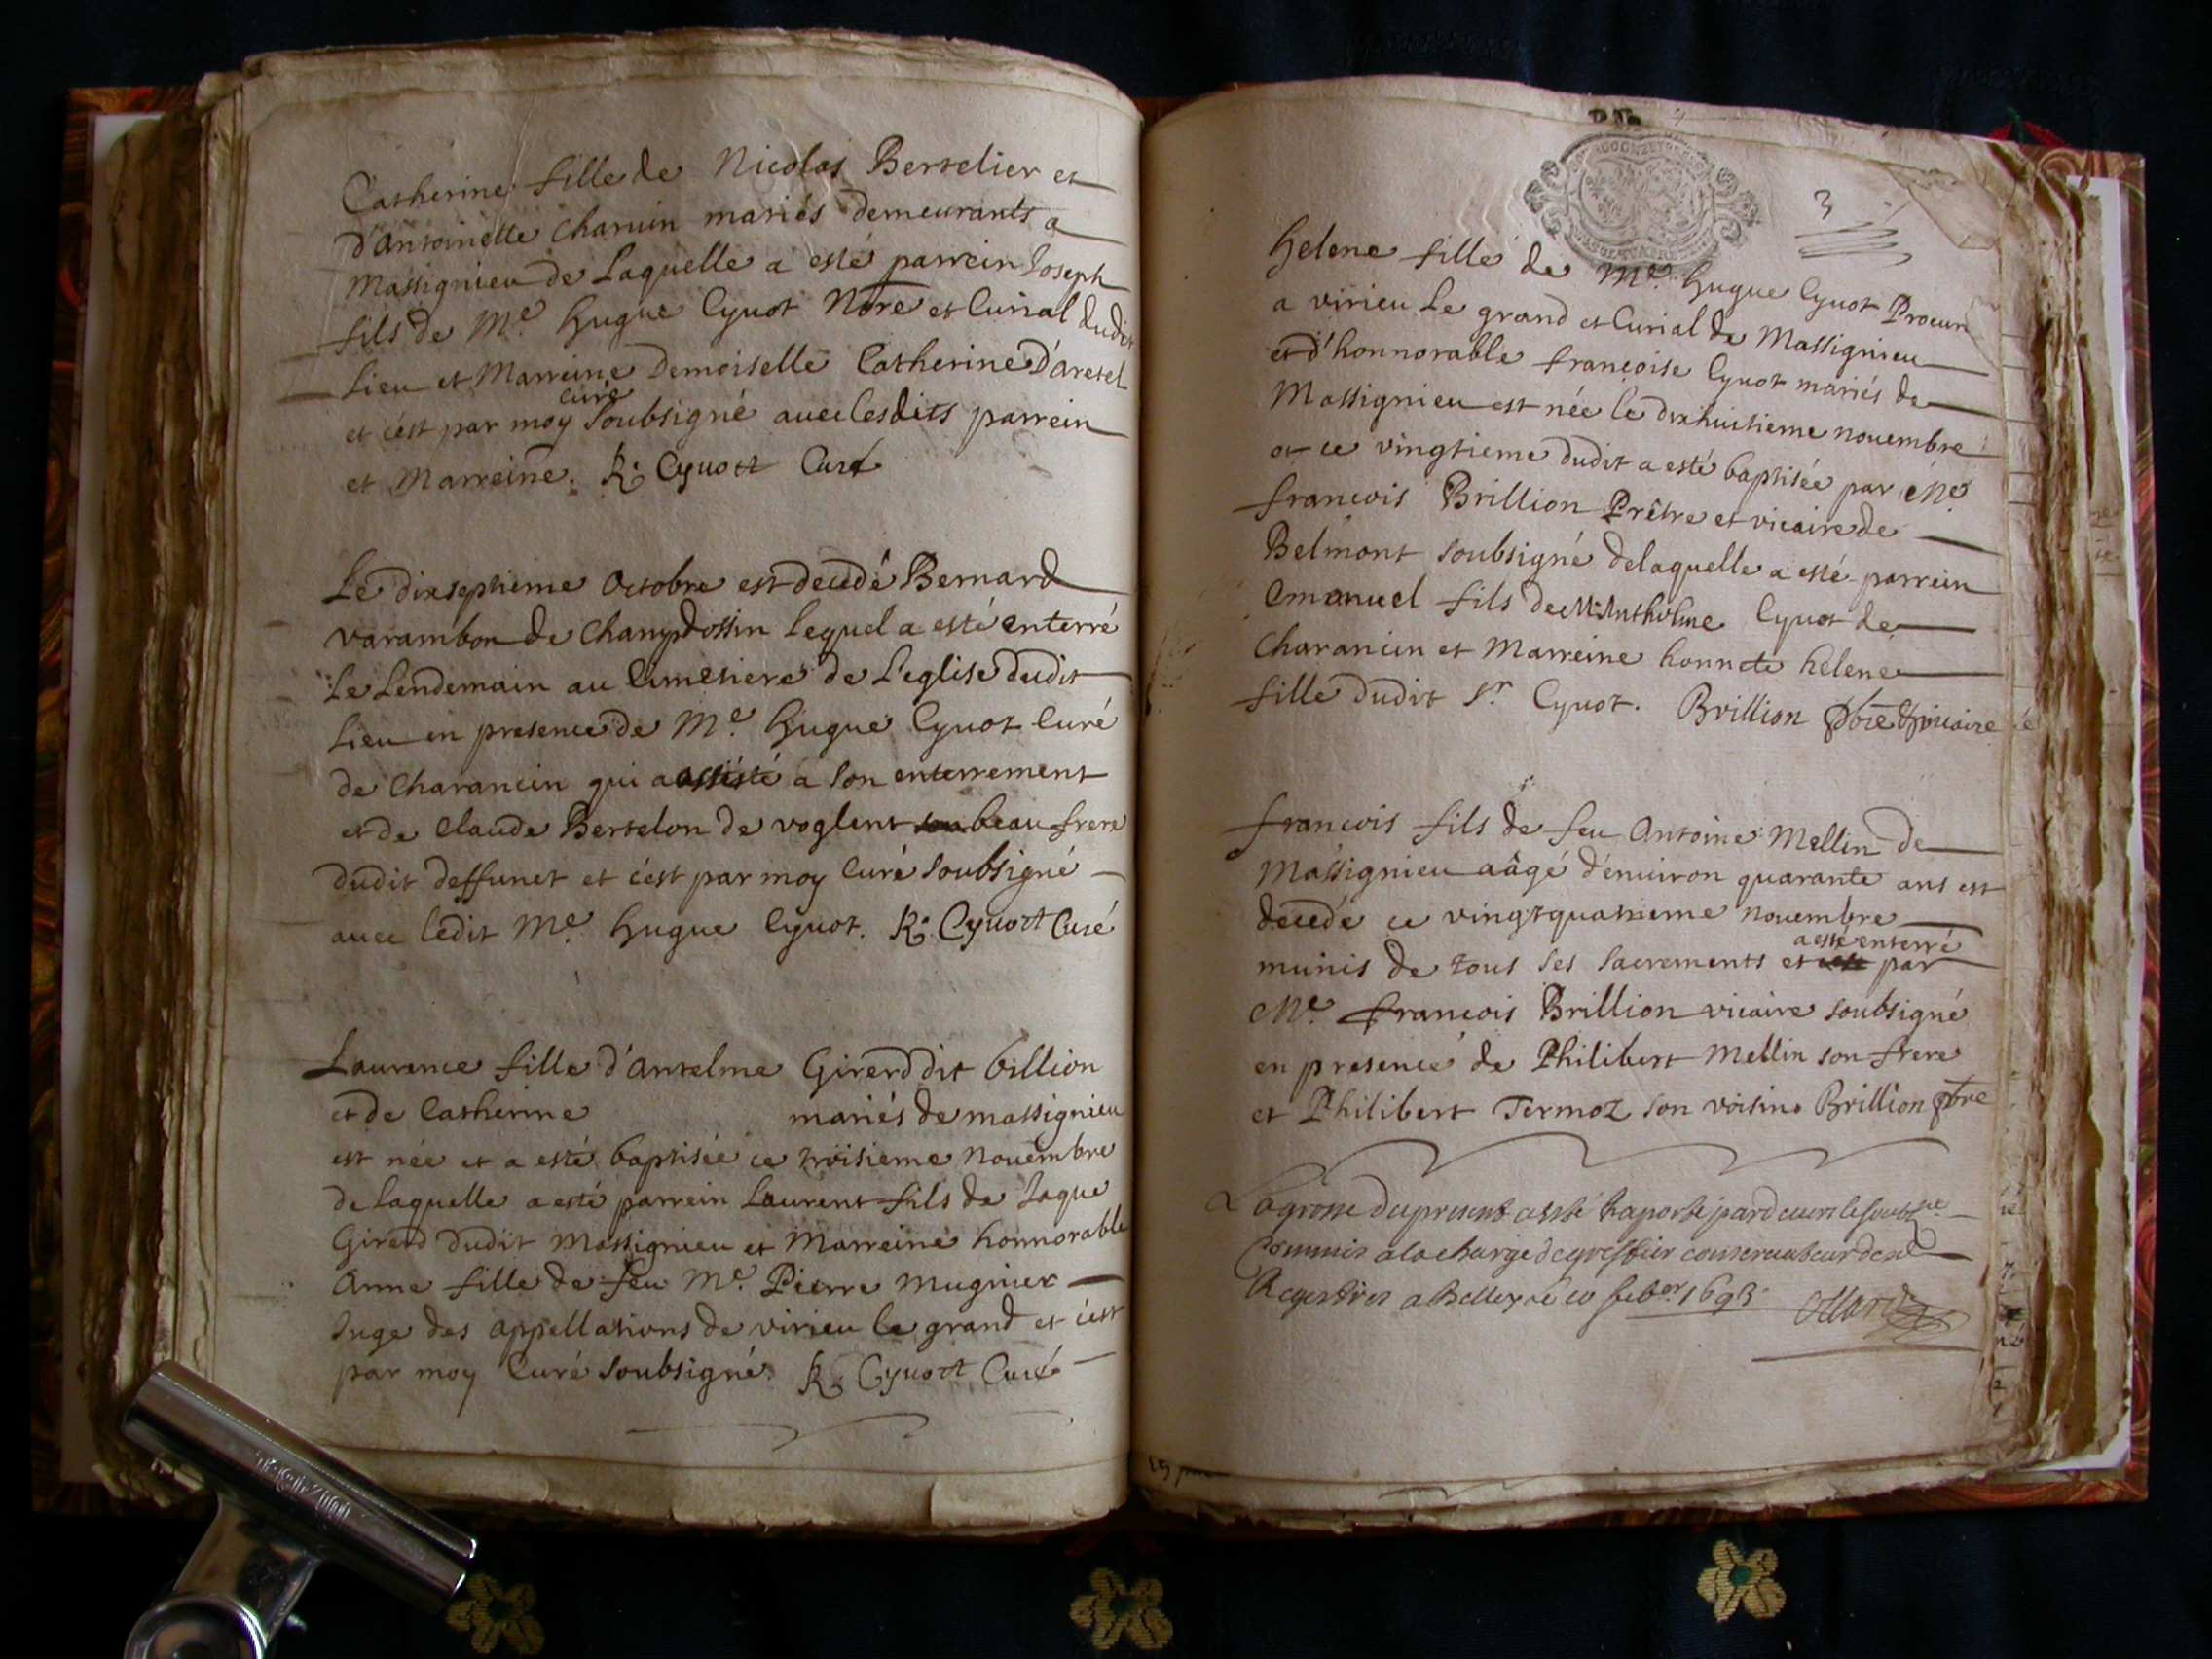 Catherine fille de Nicolas Bertelier et
d'antoinette Charuin mariés demeurants a
Massignieu de Laquelle a esté parrein Joseph
fils de Me. Hugue Cyuot Nore et Curial dudit
Lieu et Marreine Demoiselle Catherine D'aretel
curé
et c'est par moy soubsigné auec lesdits parrein
et Marreine. R: Cyuott Curé
Le dixseptieme Octobre est decedé Bernard
varambon de Champdossin lequel a esté enterré
Le Lendemain au Cimetiere de L'eglise dudit
Lieu en presence de Me. Hugue Cyuot Curé
de Charancin qui a assisté a son enterrement
et de Claude Bertelon de voglent beau frere
dudit deffunct et c'est par moy Curé soubsigné
auec ledit Me. Hugue Cyuot. R: Cyuott Curé
Laurence fille d'antelme Girerd dit billion
et de Catherine mariés de massignieu
est née et a esté baptisée ce troisieme nouembre
de laquelle a esté parrein Laurent fils de Jaque
Girerd dudit Massignieu et Marreine honnorable
Anne fille de feu Me. Pierre Muginer
Juge des appellations de virieu le grand et c'est
par moy Curé soubsigné. R: Cyuott Curé
3
helene fille de Me. Hugue Cyuot Procur
a virieu Le grand et Curial de Massignieu
et d'honnorable francoise Cyuot mariés de
Massignieu est née le dixhuitieme nouembre
et ce vingtieme dudit a esté baptisée par Me
francois Brillion Prêtre et vicaire de
Belmont soubsigné de laquelle a esté parrein
emanuel fils de Mr. Antholme Cyuot de
Charancin et Marreine honnete helene
fille dudit Sr. Cyuot. Brillion pbre & vicaire
francois fils de feu Antoine Mellin de
Massignieu aâgé d'enuiron quarante ans est
decedé ce vingtquatrieme nouembre
a esté enterré
munis de tous ses sacrements et par
Me. francois Brillion vicaire soubsigné
en presence de Philibert Mellin son frere
et Philibert Termoz son voisin. Brillion pbre
La grosse du present a esté raporté par deuers le soubsne
Commis a la charge de greffier conseruateur des
Regestres a Belley ce feber 1693